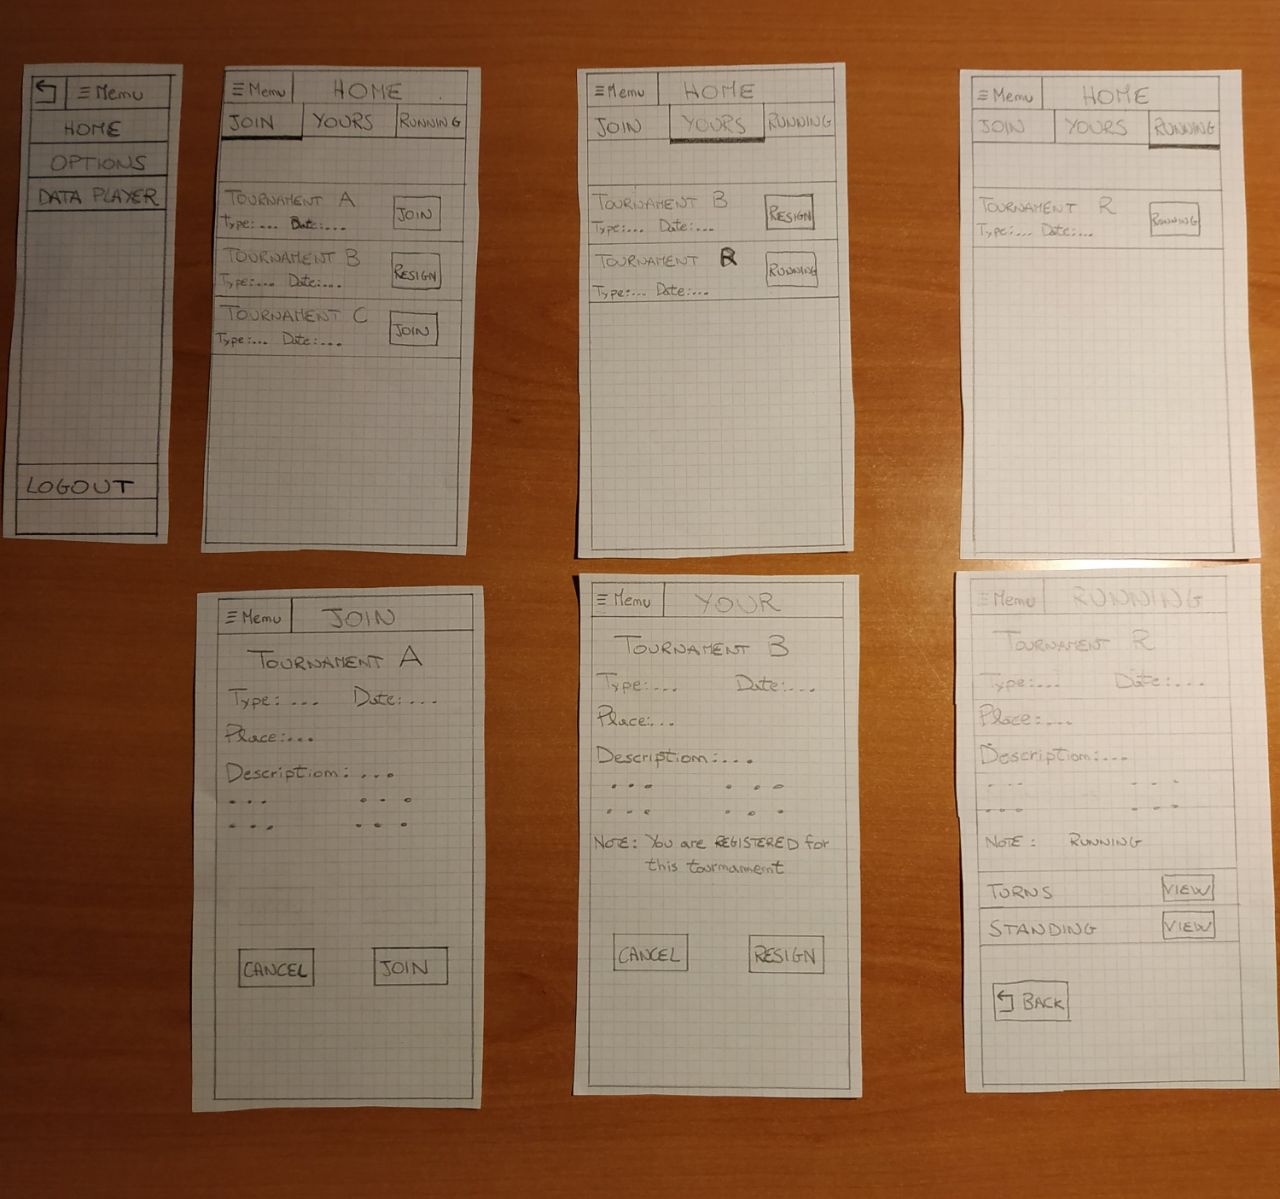 ≡ Menu
HOME
OPTIONS
DATA PLAYER
LOGOUT
≡ Menu HOME
JOIN YOURS RUNNING
TOURNAMENT A
Type:... Date:...
JOIN
TOURNAMENT B
Type:... Date:...
RESIGN
TOURNAMENT C
Type:... Date:...
JOIN
≡ Menu HOME
JOIN YOURS RUNNING
TOURNAMENT B
Type:... Date:...
RESIGN
TOURNAMENT R
Type:... Date:...
RUNNING
≡ Menu HOME
JOIN YOURS RUNNING
TOURNAMENT R
Type:... Date:...
RUNNING
≡ Menu JOIN
TOURNAMENT A
Type: ... Date:...
Place:...
Description: ...
... ...
... ...
CANCEL JOIN
≡ Menu YOUR
TOURNAMENT B
Type:... Date:...
Place:...
Description:...
... ...
... ...
NOTE: You are REGISTERED for
this tournament
CANCEL RESIGN
≡ Menu RUNNING
TOURNAMENT R
Type:... Date:...
Place:...
Description:...
... ...
... ...
NOTE: RUNNING
TURNS VIEW
STANDING VIEW
BACK